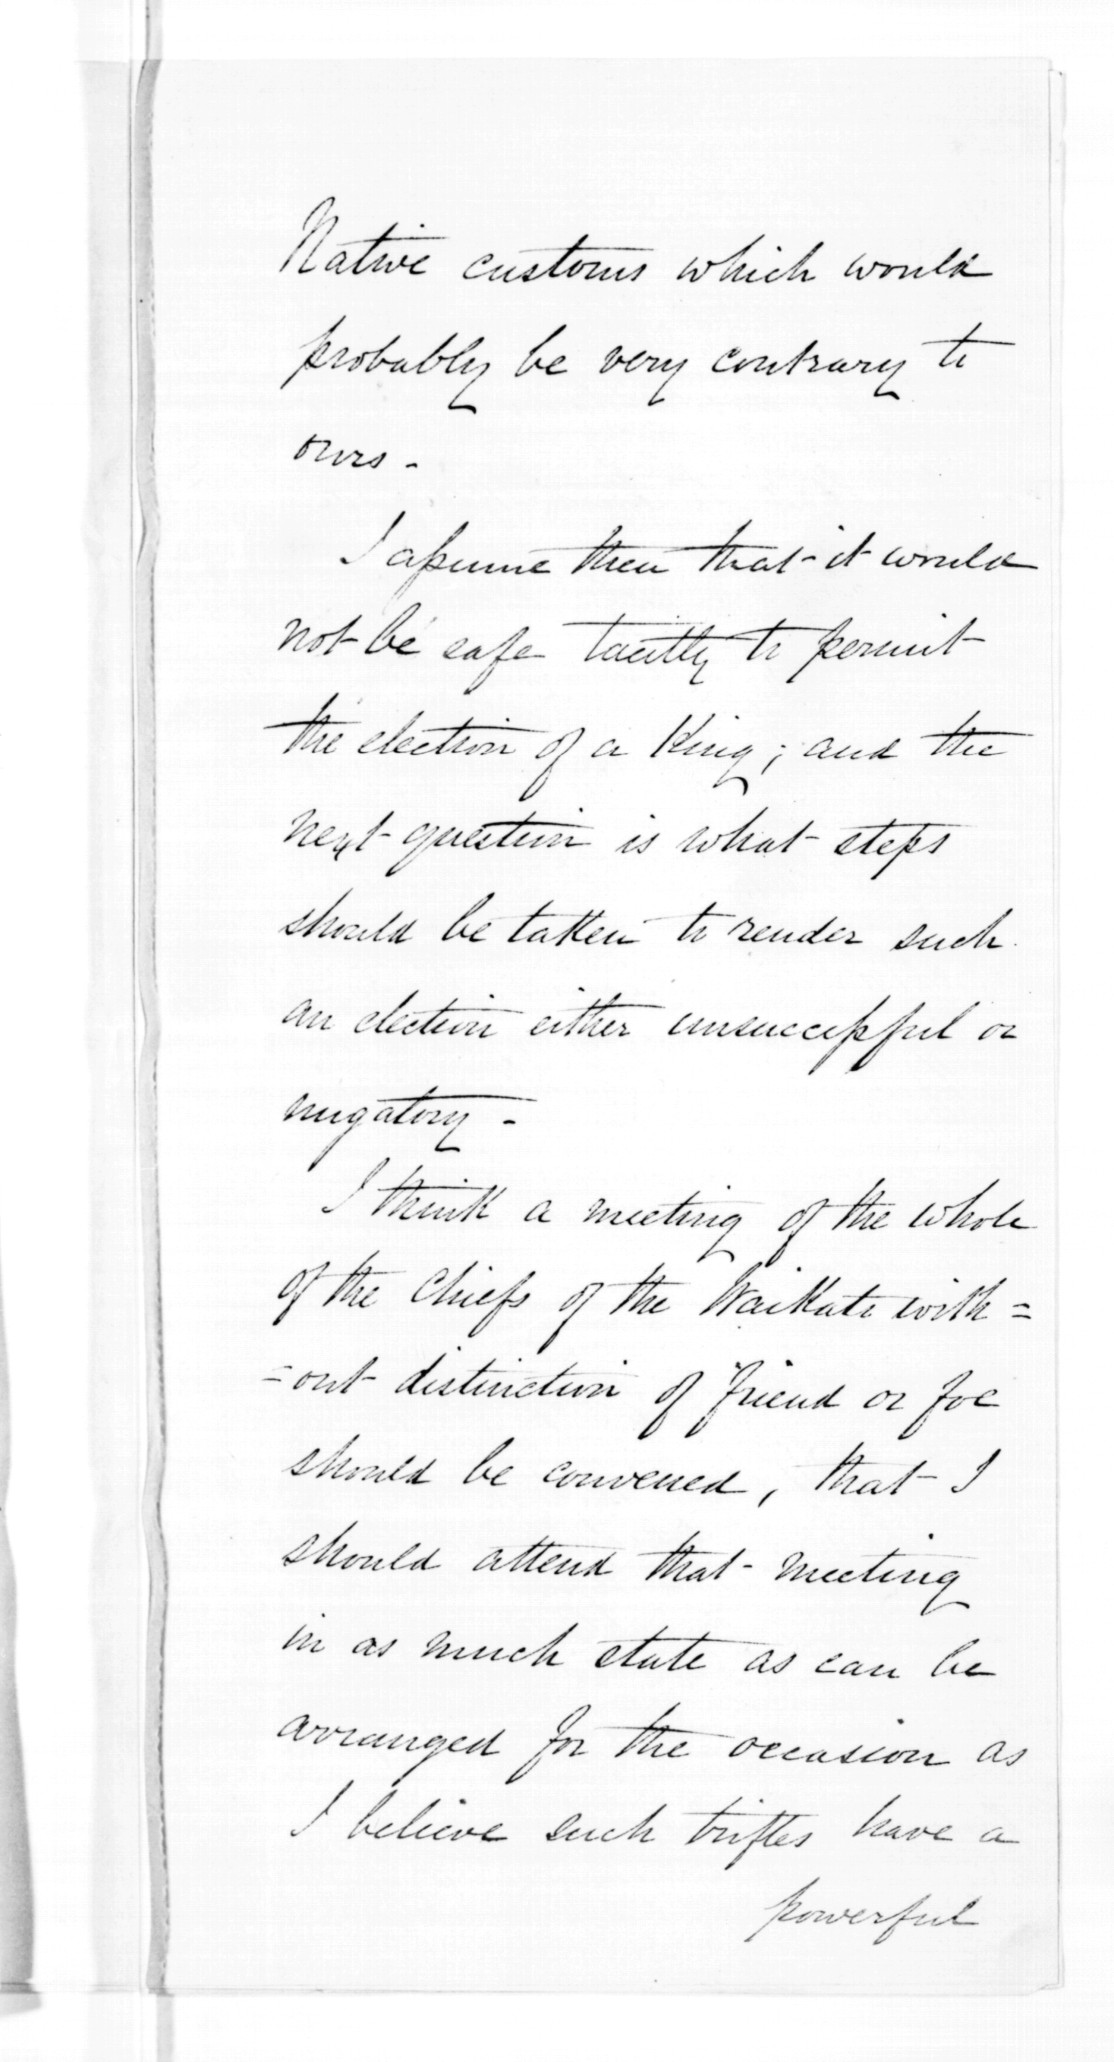 Native customs which would
probably be very contrary to
ours -
I assume then that it would
not be safe tacitly to permit
the election of a King; and the
next question is what steps
should be taken to render such
an election either unsuccessful or
nugatory -
I think a meeting of the whole
of the Chiefs of the Waikato with=
=out distinction of friend or foe
should be convened, that I
should attend that meeting
in as much state as can be
arranged for the occasion as
I believe such trifles have a
powerful